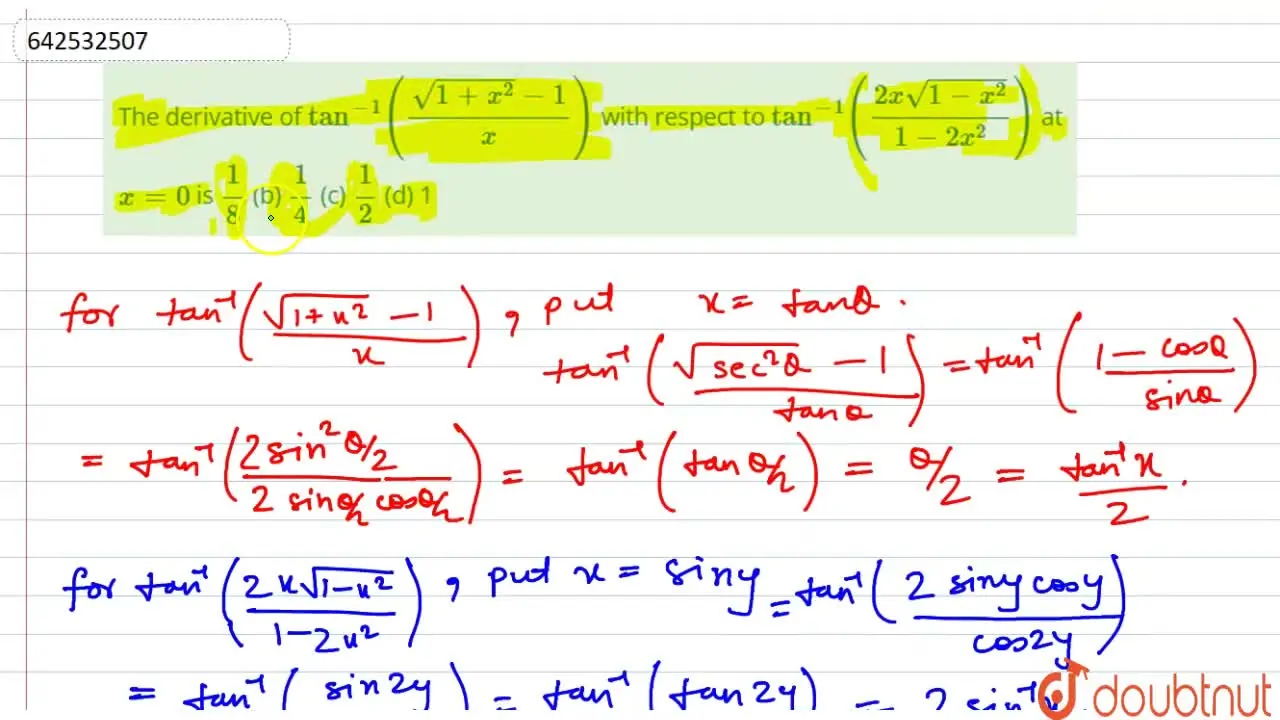 642532507
The derivative of tan⁻¹((√(1 + x²) − 1)/x) with respect to tan⁻¹((2x√(1 − x²))/(1 − 2x²)) at
x = 0 is 1/8 (b) 1/4 (c) 1/2 (d) 1
for tan⁻¹((√(1+x²) − 1)/x), put x = tanθ.
tan⁻¹((√(sec²θ) − 1)/tanθ) = tan⁻¹((1 − cosθ)/sinθ)
= tan⁻¹((2 sin² θ/2)/(2 sin θ/2 cos θ/2)) = tan⁻¹(tan θ/2) = θ/2 = (tan⁻¹x)/2.
for tan⁻¹((2x√(1−x²))/(1−2x²)), put x = siny = tan⁻¹((2 siny cosy)/cos2y)
= tan⁻¹(sin2y = tan⁻¹(tan2y) = 2 sin⁻¹x
doubtnut